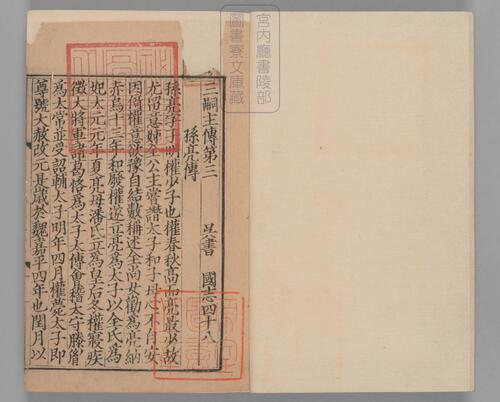 三嗣主傳第三　吳書　國志四十八
孫亮傳
孫亮字子明權少子也權春秋高而亮最少故
尤留意姊全公主嘗譖太子和子母心不自安
因倚權意欲豫自結數稱述全尚女勸爲亮納
赤烏十三年和廢權遂立亮爲太子以全氏爲
妃太元元年夏亮母潘氏立爲皇后冬權寢疾
徵大將軍諸葛恪爲太子太傅會稽太守滕胤
爲太常並受詔輔太子明年四月權薨太子即
尊號大赦改元是歲於魏嘉平四年也閏月以
宮内廳書陵部
圖書寮文庫藏